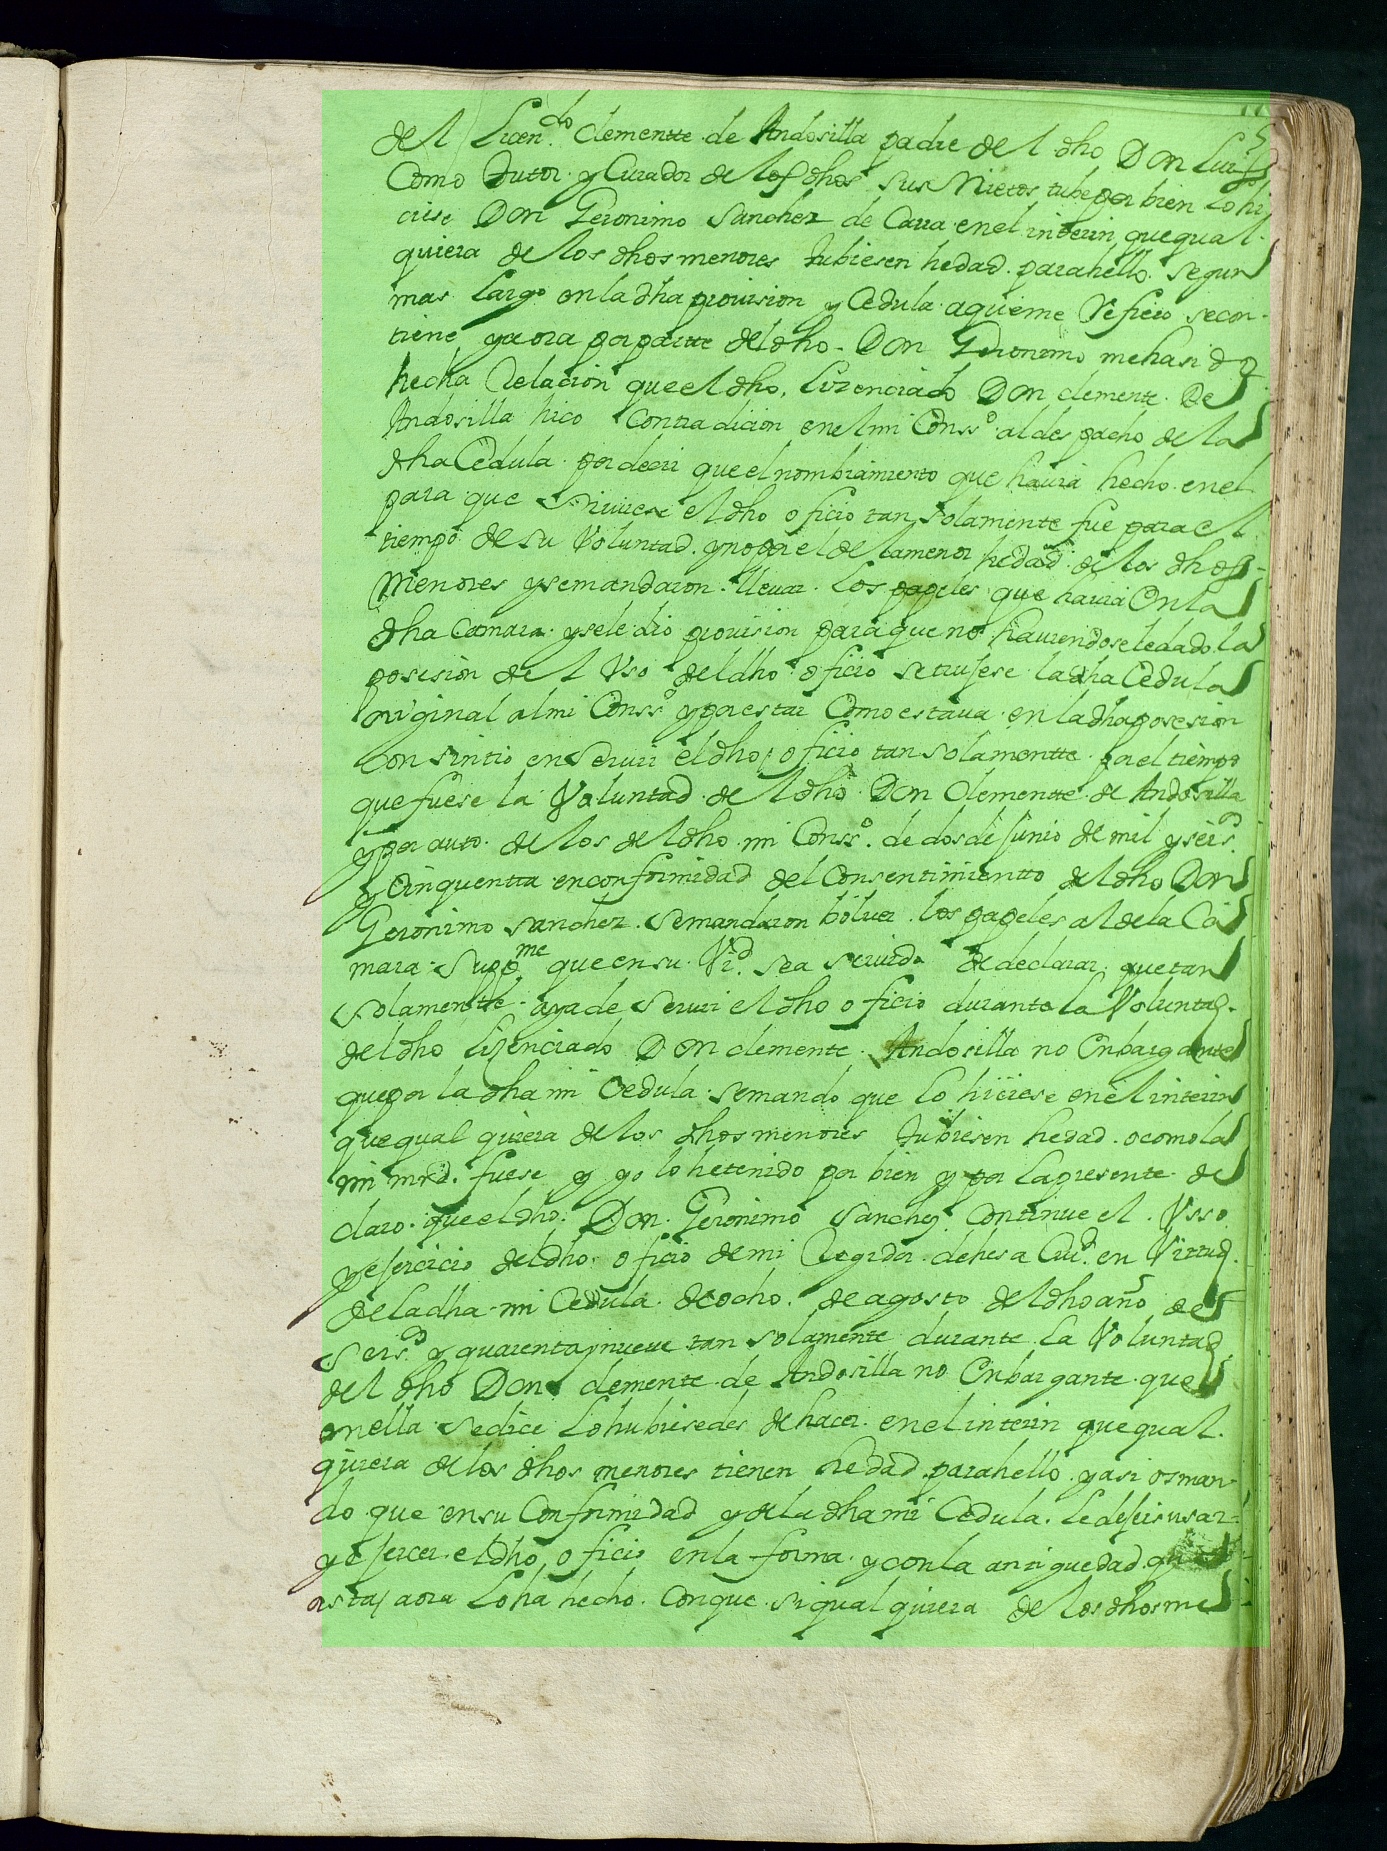 del Licen.do Clementte de Andosilla padre del dho Don Luis
Como tutor y Curador de los dhos sus Nietos tube por bien lo hi
ciese Don Geronimo Sanchez de Carra en el interin que qual
quiera de los dhos menores tubiesen hedad para hello segun
mas largo en la dha provision y Cedula a que me Refiero secon
tiene y aora por partte del dho Don Geronimo me ha sido
hecha Relacion que el dho Lizenciado Don clemente De
Andosilla hico Contradicion en el mi Conss.o al despacho de la
dha Cedula por decir que el nombramiento que havia hecho en el
para que sirviese el dho oficio tan solamente fue para el
tiempo de su Voluntad y no por el de la menor hedad de los dhos
Menores y se mandaron llevar los papeles que havia En la
dha Camara y se le dio provision para que no haviendosele dado la
posesion del Vso del dho oficio se trujese la dha Cedula
original al mi Conss.o y por estar Como estava en la dha posesion
Consintio en servir el dho oficio tan solamentte por el tiempo
que fuese la Voluntad del dho Don Clementte de Andosilla
y por auto de los del dho mi Conss.o de dos de junio de mil y seis.os
y Cinquentta en conformidad del Consentimientto del dho Don
Geronimo Sanchez se mandaron bolver los papeles al de la Ca
mara Supp.me que en su Vi.d sea servido de declarar que tan
solamentte aya de servir el dho oficio durante la Voluntad
del dho Lizenciado Don clemente Andosilla no Enbargante
que por la dha mi Cedula se mando que lo hiciese en el interin
que qual quiera de los dhos menores tubiesen hedad o como la
mi mrd. fuese y yo lo he tenido por bien y por la presente de
claro que el dho Don Geronimo Sanchez Continue el Vsso
y ejercicio del dho oficio de mi Regidor de hesa Ciu.d en Virtud
de la dha mi Cedula de ocho de agosto del dho año de
seis.os y quarenta y nueve tan solamente durante la Voluntad
del dho Don clemente de Andosilla no Enbargante que
en ella se dice lo hubiesedes de hacer en el interin que qual
quiera de los dhos menores tienen hedad para hello y asi os man
do que en su Conformidad y de la dha mi Cedula le dejeis usar
y ejercer el dho oficio en la forma y con la antiguedad que
asta aora lo ha hecho Con que si qual quiera de los dhos me